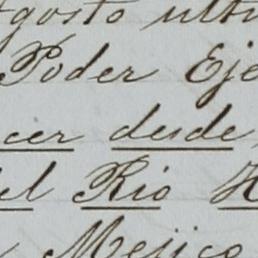 Agosto ulti
Poder Eje
cer desde
del Rio
Mejico